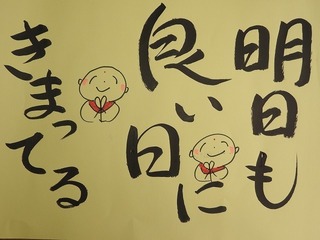 明日も
良い日に
きまってる